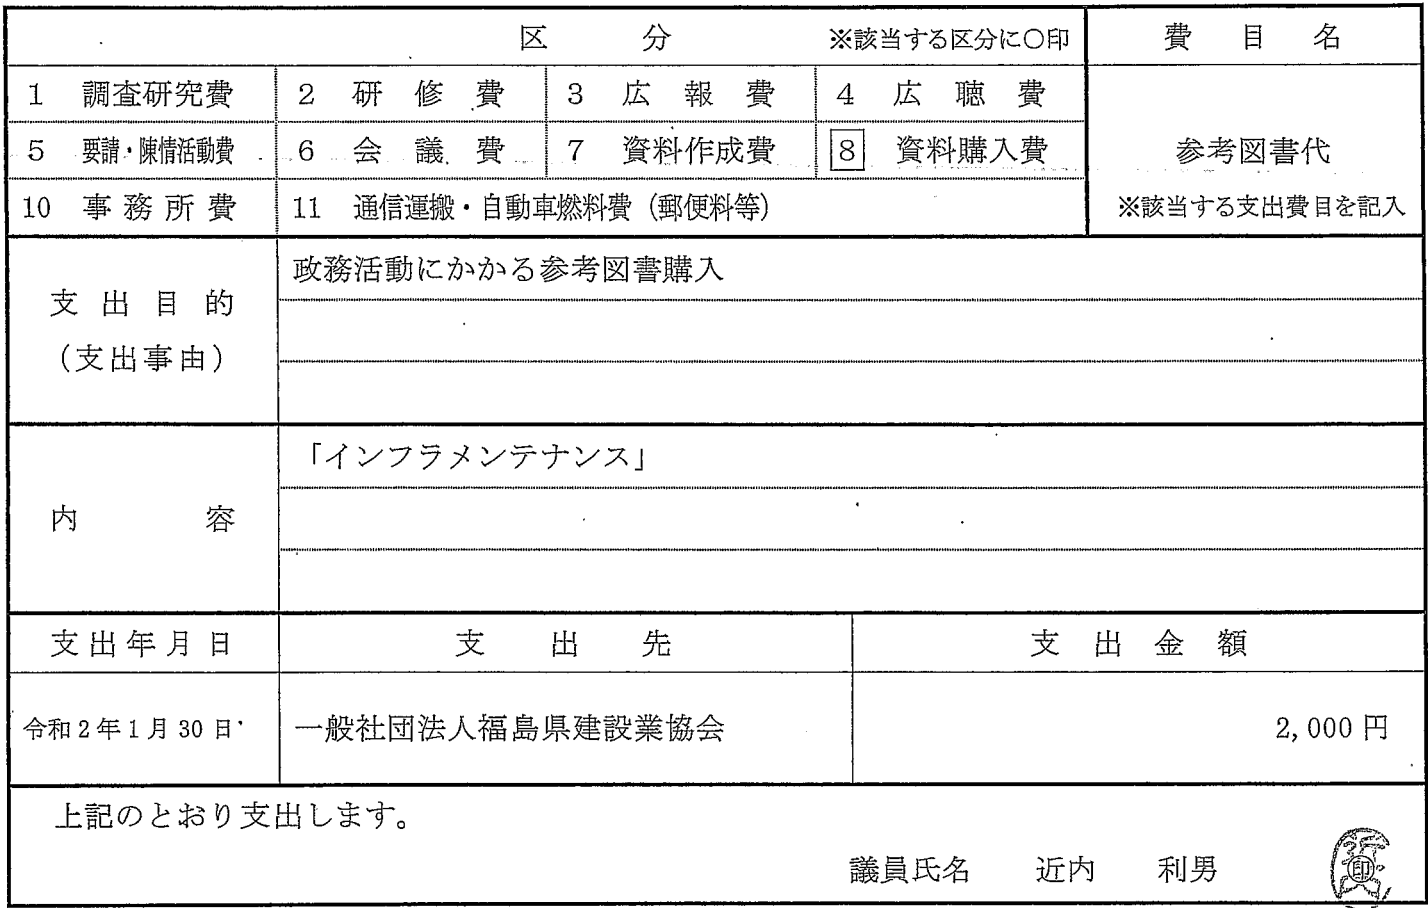 区 分 ※該当する区分に〇印 費 目 名
1 調査研究費 2 研 修 費 3 広 報 費 4 広 聴 費
5 要請・陳情活動費 6 会 議 費 7 資料作成費 8 資料購入費 参考図書代
10 事 務 所 費 11 通信運搬・自動車燃料費（郵便料等） ※該当する支出費目を記入
支 出 目 的
（支出事由）
政務活動にかかる参考図書購入
内 容
「インフラメンテナンス」
支出年月日 支 出 先 支 出 金 額
令和2年1月30日 一般社団法人福島県建設業協会 2,000円
上記のとおり支出します。
議員氏名 近内 利男 印